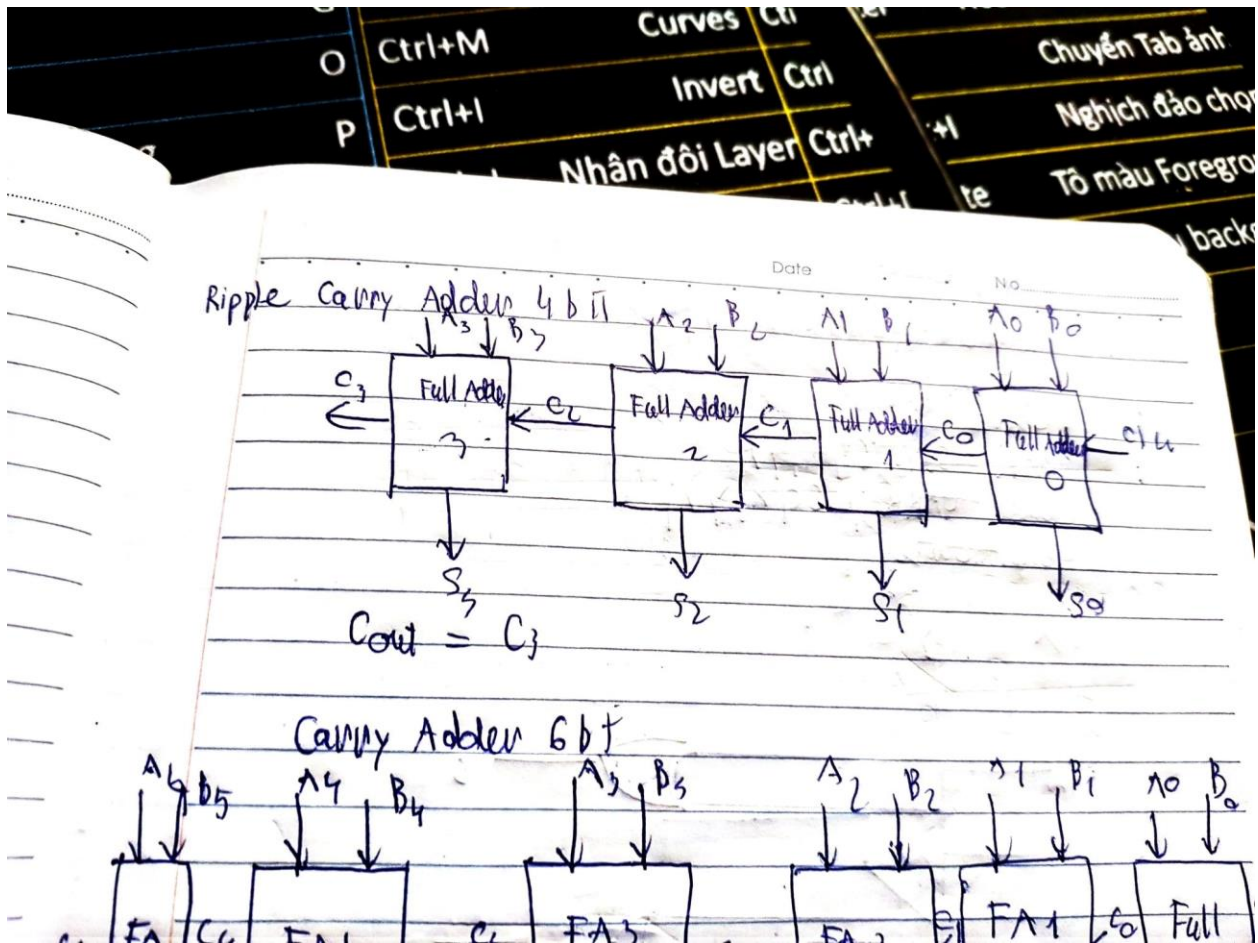 O Ctrl+M Curves
P Ctrl+I Invert Ctrl
Nhân đôi Layer Ctrl+
Chuyển Tab ảnh
+I Nghịch đảo chọn
te Tô màu Foregro
backg
Date No
Ripple Carry Adder 4 bit
A3 B3 A2 B2 A1 B1 A0 B0
C3 Full Adder C2 Full Adder C1 Full Adder C0 Full Adder
3 2 1 0
S3 S2 S1 S0
Cout = C3
Carry Adder 6bt
B5 A4 B4 A3 B3 A2 B2 A1 B1 A0 B0
FA C4 FA3 C1 FA1 C0 Full